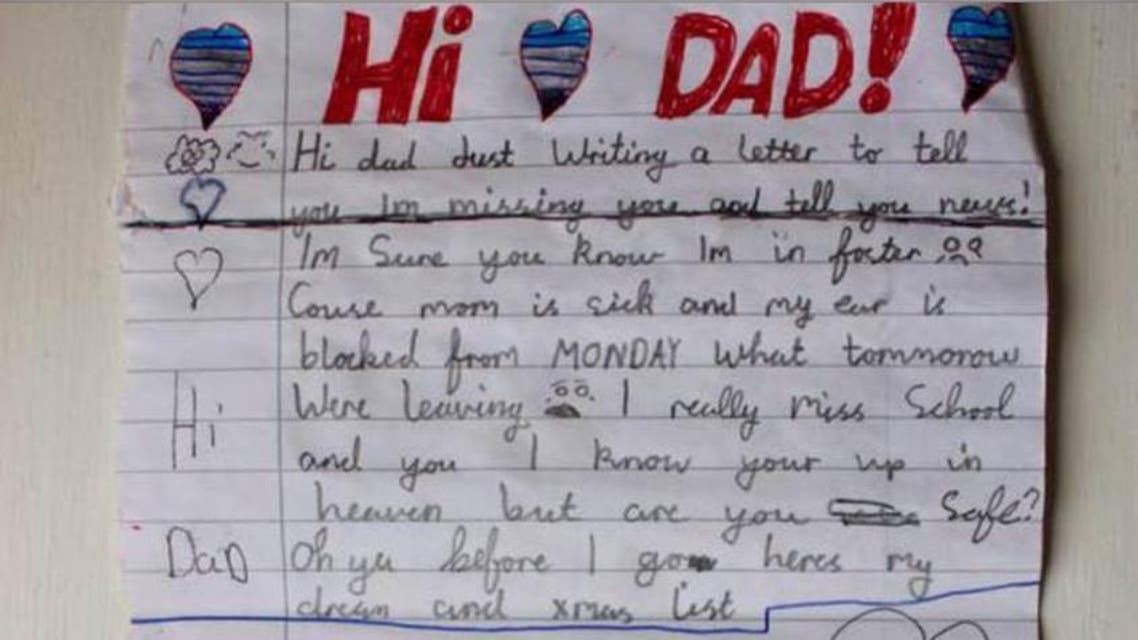 Hi DAD!
Hi dad Just Writing a letter to tell
you Im missing you and tell you news!
Im Sure you know Im in foster
Couse mom is sick and my ear is
blocked from MONDAY what tommorow
Hi Were leaving I really miss School
and you I know your up in
heaven but are you Safe?
Dad Oh ya before I go heres my
dream and xmas list